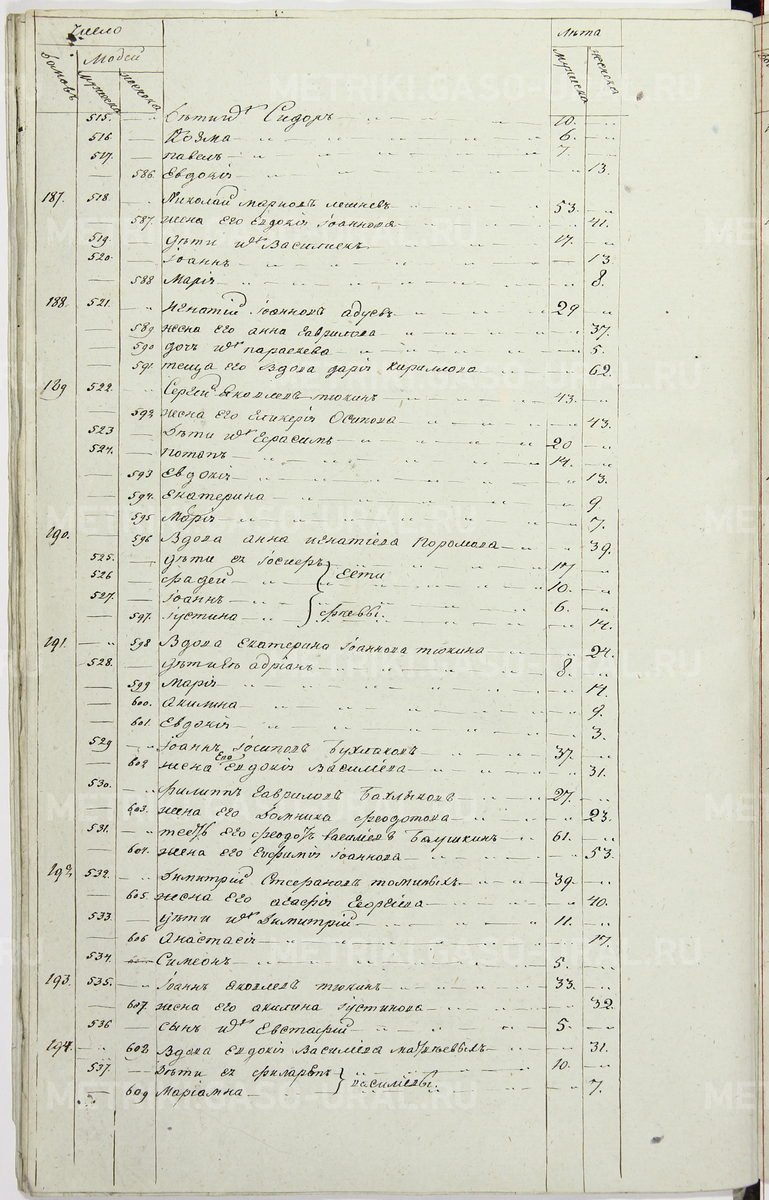 Число Лѣта
Людей
домовъ мужеска женска мужеска женска
515. Дѣти ихъ Сидоръ 10.
516 Козма 6.
517. павелъ 7.
586. Евдокія 13.
187. 518. Николай марковъ 53.
587. жена его евдокія іоаннова 41.
519. дѣти ихъ Василискъ 17.
520. іоаннъ 13.
588 Марія 8.
188. 521. игнатій іоанновъ 29
589 жена его анна гаврилова 37.
590 дочь ихъ параскева 5.
591 теща его вдова дарія кириллова 62.
189 522. Сергей яковлевъ тюкинъ 43.
592 жена его гликерія Осипова 43.
523 Дѣти ихъ герасимъ 20
524. потапъ 14.
593 Евдокія 13.
594. Екатерина 9
595 Марія 7.
190. 596 Вдова анна игнатіева 39.
525. дѣти ея 17
526 фадей 10.
527. іоаннъ 6.
597. іустина 14.
191. 598 Вдова Екатерина іоаннова тюкина 24.
528. дѣти ея адріанъ 8.
599 Марія 14.
600. акилина 9.
601. Евдокія 3.
529 іоаннъ іосиповъ 37.
602 жена его евдокія Василіева 31.
530. филиппъ гавриловъ 27.
603. жена его домника феодотова 23.
531. тесть его василіевъ 61.
604. жена его евфимія іоаннова 53.
192. 532. Димитрій томиныхъ 39.
605. жена его агафія георгіева 40.
533. дѣти ихъ димитрій 11.
606 анастасія 17.
534. Симеонъ 5.
193. 535. іоаннъ яковлевъ тюкинъ 33.
607. жена его акилина іустинова 32.
536 сынъ ихъ Евстафій 5
194. 608 Вдова евдокія Василіева 31.
537. Дѣти ея филаретъ 10.
609 Маріамна василіевы 7.
METRIKI.GASO-URAL.RU